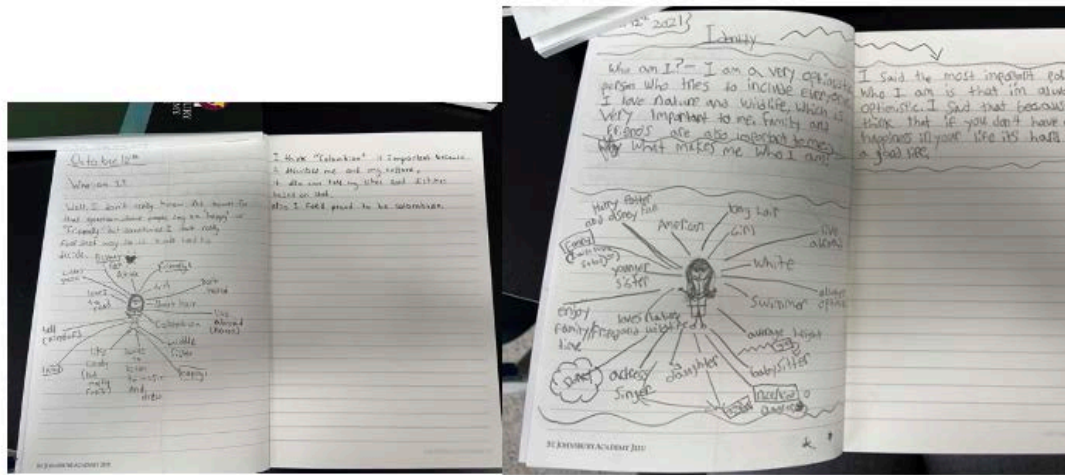 October 12th
Who am I?
Well, I don't really know the answer for
that question. Some people say im "happy" or
"friendly" but sometimes I don't really
feel that way so it is not hard to
decide.
friendly
Girl
Dark
haired
Short hair
Live
abroad
(Korea)
Colombian
middle
sister
happy
love
to
Like
candy
(but
mostly
fruit)
loves
to
listen
to music
and
draw
tall
I think "Colombian" is important because
it describes me and my culture.
it also can tell my likes and dislikes
based on that.
also I feel proud to be colombian.
ST. JOHNSBURY ACADEMY JEJU
12th 2021}
Identity
Who am I? - I am a very optimistic
person who tries to include everyone
I love nature and wildlife, which is
very important to me. Family and
Friends are also important to me.
What makes me who I am?
Harry Potter
and disney fan
American
long hair
Girl
live
abroad
Funny
younger
sister
White
always
Swimmer
enjoy
family/friend
time
loves nature
and wildlife
average height
babysitter
Sweet
actress
singer
daughter
ST. JOHNSBURY ACADEMY JEJU
I said the most important
who I am is that im
optimistic. I said that
think that if you don't have
happiness in your life its hard
a good life.